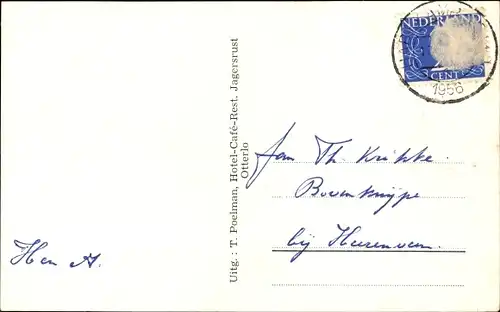 NEDERLAND
CENT
1956
Uitg.: T. Poelman, Hotel-Café-Rest. Jagersrust
Otterlo
Fam Th. Krikke.
Bovenknijpe
bij Heerenveen.
Hen A.